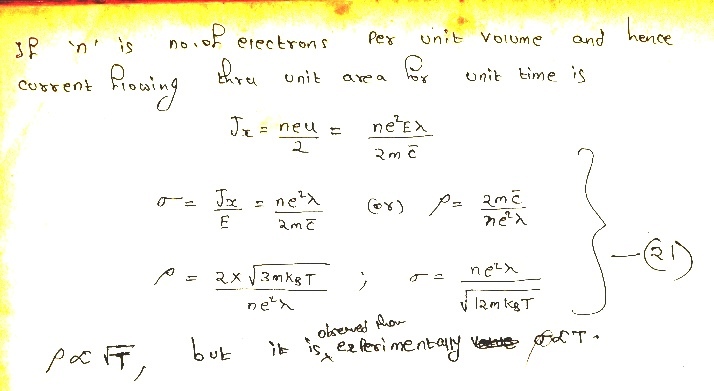 If 'n' is no. of electrons per unit volume and hence
current flowing thru unit area for unit time is
Jx = neu/2 = ne²Eλ/2mc̄
σ = Jx/E = ne²λ/2mc̄ (or) ρ = 2mc̄/ne²λ
ρ = 2×√3mkBT/ne²λ ; σ = ne²λ/√12mkBT —(21)
ρ∝√T, but it is observed that experimentally ρ∝T.